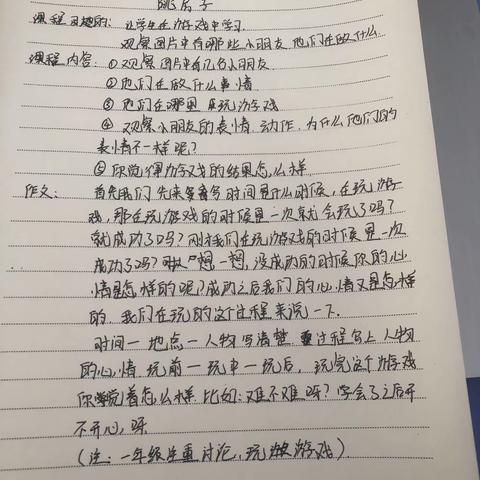 跳房子
课程目的: 让学生在游戏中学习.
观察图片中有哪些小朋友.他们在做什么
课程内容: ①观察图片中有几个小朋友
②他们在做什么事情
③他们在哪里 玩游戏
④观察小朋友的表情.动作.为什么他们的
表情不一样呢?
⑤你觉得游戏的结果怎么样.
作文: 首先我们先来写时间是什么时候,在玩游
戏,那在玩游戏的时候是一次就会玩了吗?
就成功了吗?刚才我们在玩游戏的时候是一次
成功了吗?可以"想一想,没成功的时候你的心
情是怎样的呢?成功之后我们的心情又是怎样
的.我们在玩的这个过程来说一下.
时间一地点一人物写清楚 重过程写上人物
的心情.玩前一玩中一玩后. 玩完这个游戏
你觉着怎么样.比如:难不难呀?学会了之后开
不开心呀
(注:一年级注重讨论,玩游戏)